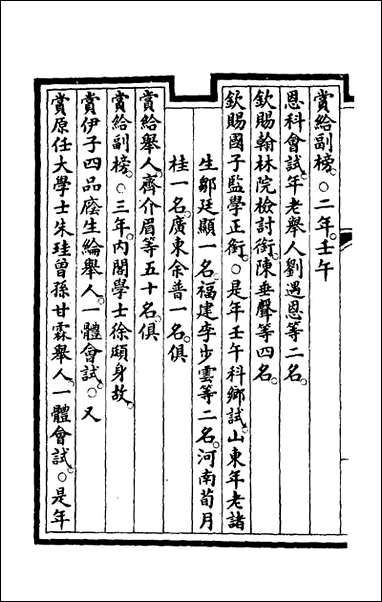 賞給副榜。○二年壬午
恩科會試。年老舉人劉遇恩等二名。
欽賜翰林院檢討銜。陳垂聲等四名。
欽賜國子監學正銜。○是年壬午科鄉試。山東年老諸
生鄒廷顯一名。福建李步雲等二名。河南荀月
桂一名。廣東余普一名。俱
賞給舉人。齊介眉等五十名。俱
賞給副榜。○三年。內閣學士徐頲身故。
賞伊子四品廕生綸舉人。一體會試。○又
賞原任大學士朱珪曾孫甘霖舉人。一體會試。○是年